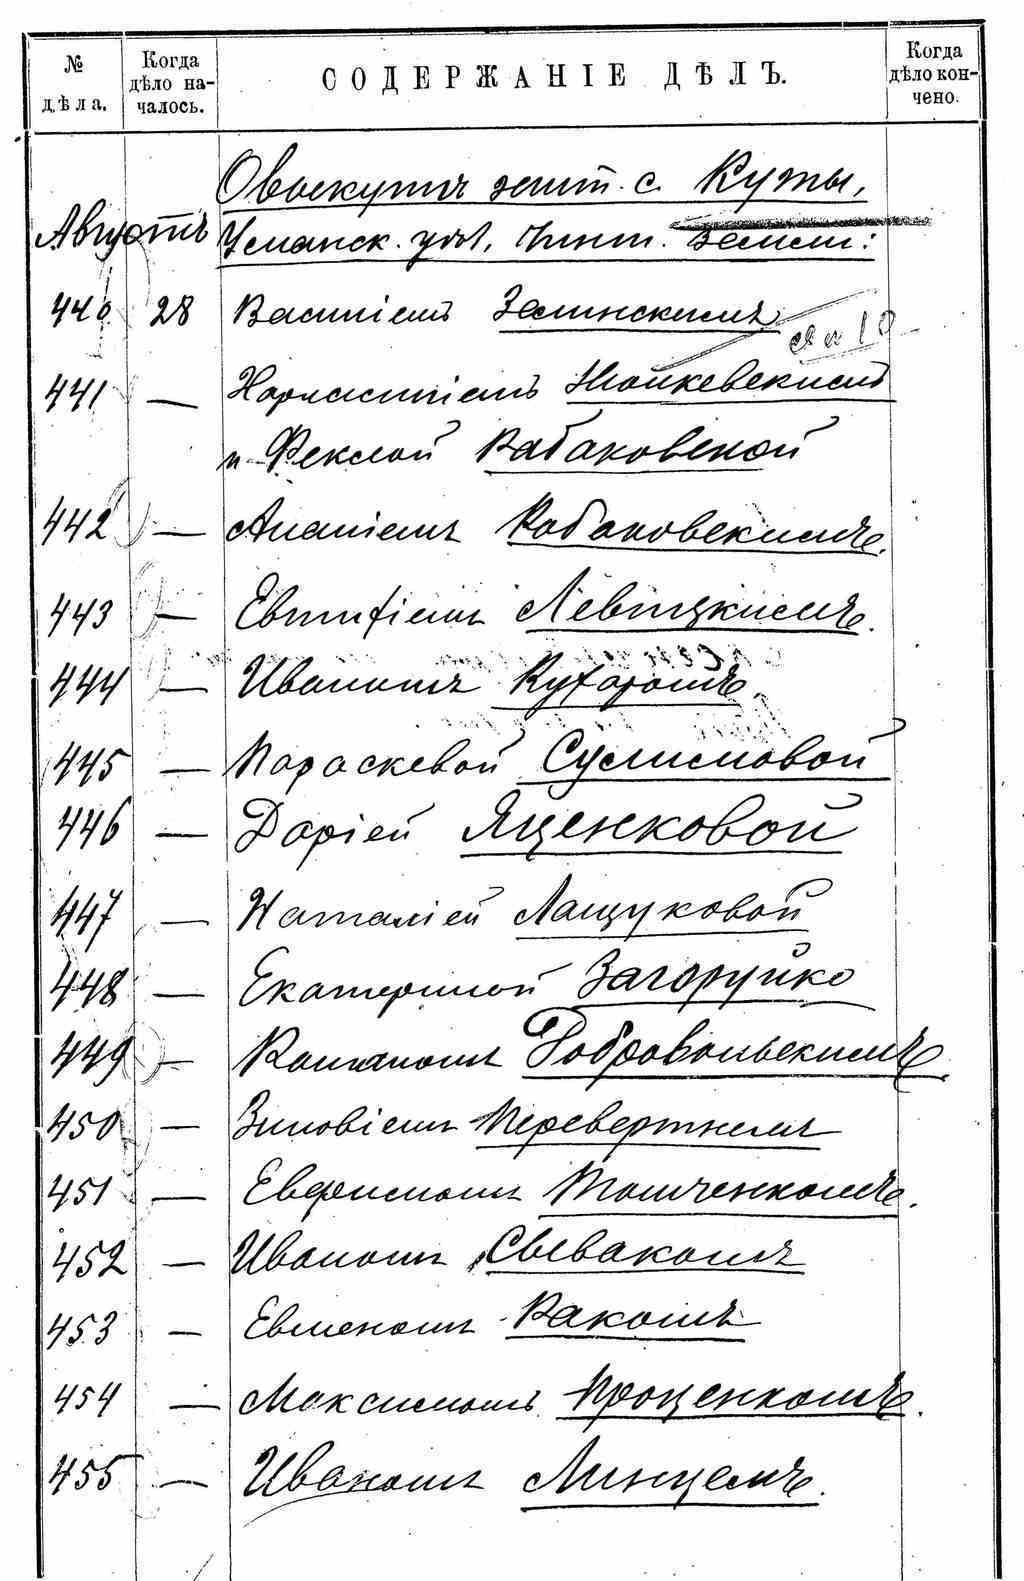 № дѣла.
Когда дѣло началось.
СОДЕРЖАНІЕ ДѢЛЪ.
Когда дѣло кончено.
О выкупѣ жит. с. Кузмы,
Августъ Уманск. уѣз. Чинш. земли:
440 28 Василіемъ Зелинскимъ
441 — Харлампіемъ
и Феклой Рабаковской
442 — Ананіемъ Рабаковскимъ.
443 — Евтифіемъ Левицкимъ.
444 — Иваномъ Кухаромъ.
445 — Параскевой Сулимовой
446 — Даріей Яценковой
447 — Наталіей Лащуковой
448 — Екатериной Загоруйко
449 — Романомъ Добровольскимъ.
450 — Зиновіемъ Перевертнемъ
451 — Евфимомъ Томченкомъ.
452 — Иваномъ Сывакомъ
453 — Евменомъ Ракомъ
454 — Максимомъ Проценкомъ.
455 — Иваномъ Линцемъ.